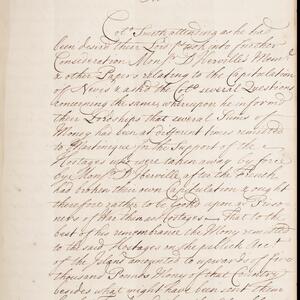 Colo. Smith attending as he had
been desired their Lordps. took into further
Consideration Monsr. D'Iberville's Memo
& other Papers relating to the Capitulation
of Nevis & askd the Colo. several Questions
concerning the same, whereupon he inform'd
their Lordships that several Sums of
Money has been at different times remitted
to Martinique for the Support of the
Hostages who were taken away by force
by Monsr. D'Iberville after the French
had broken their own Capitulation & ought
therefore rather to be look'd upon as Priso-
ners of War than as Hostages. That to the
best of his remembrance the Money remitted
to the said Hostages on the publick Acct.
of the Island amounted to upwards of five
thousand Pounds Money of that Country
besides what might have been sent them